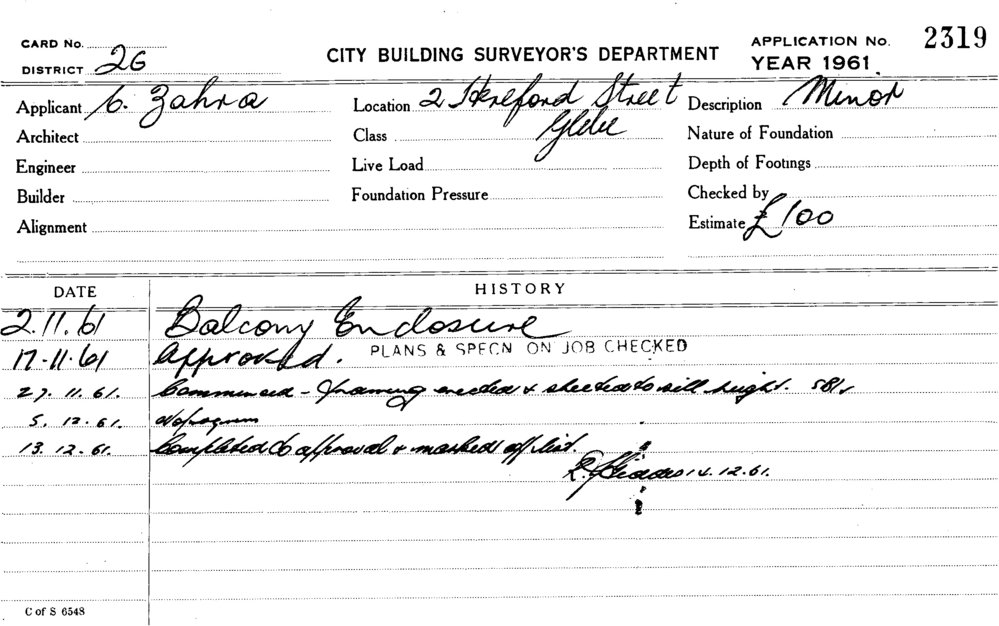 CARD No.
DISTRICT 26
CITY BUILDING SURVEYOR'S DEPARTMENT
APPLICATION No. 2319
YEAR 1961
Applicant C. Zahra
Location 2 Hereford Street
Glebe
Description Minor
Architect
Class
Nature of Foundation
Engineer
Live Load
Depth of Footings
Builder
Foundation Pressure
Checked by
Alignment
Estimate £100
DATE HISTORY
2.11.61 Balcony Enclosure
17-11-61 Approved. PLANS & SPECN ON JOB CHECKED
27.11.61. Commenced - framing erected & sheeted to sill height.
5.12.61. No progress
13.12.61. Completed to approval & marked off list.
14.12.61.
C of S 6548